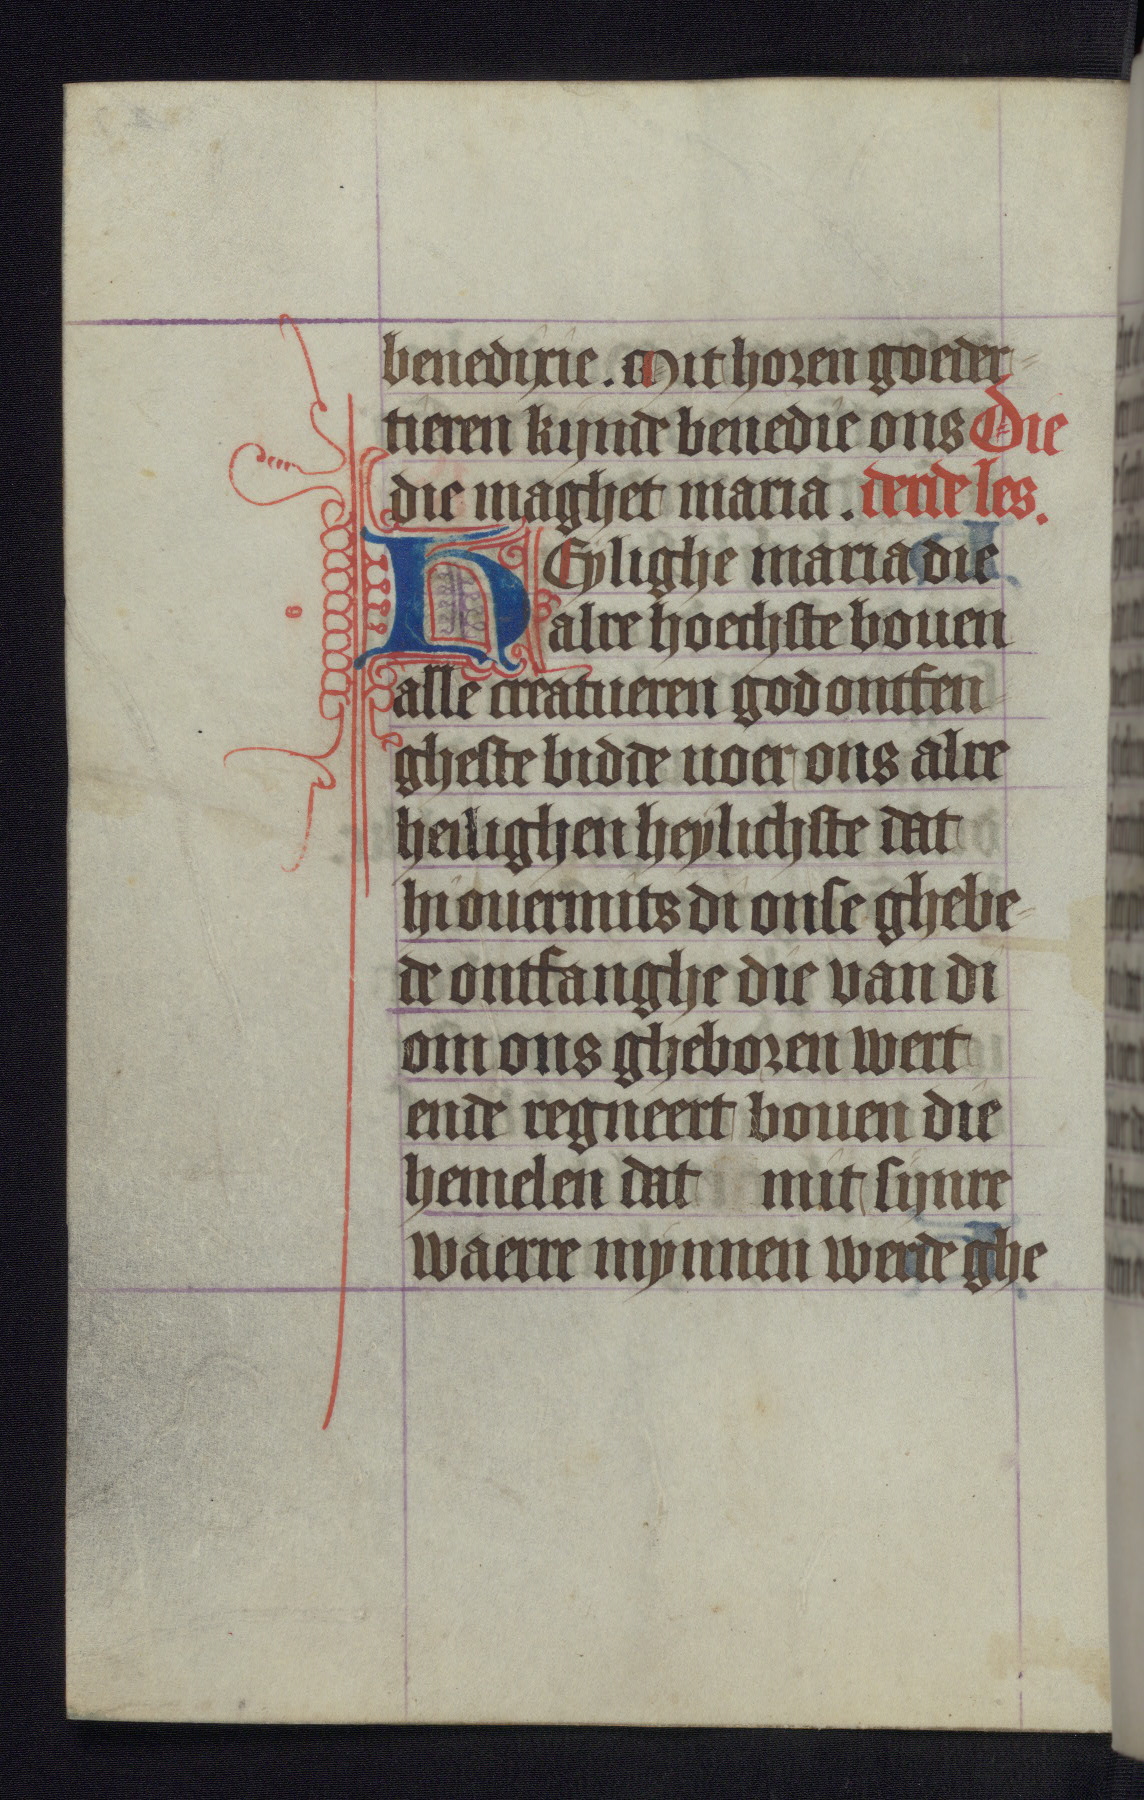 benedixie. Mit horen goeder-
tieren kijnde benedie ons Die
die maghet maria. derde les.
HEylighe maria die
alre hoechste bouen
alle creatueren god ontfen-
gheste bidde uoer ons alre
heilighen heylichste dat
hi ouermits di onse ghebe-
de ontfanghe die van di
om ons gheboren wert
ende regneert bouen die
hemelen dat mit sijnre
waerre mynnen werde ghe